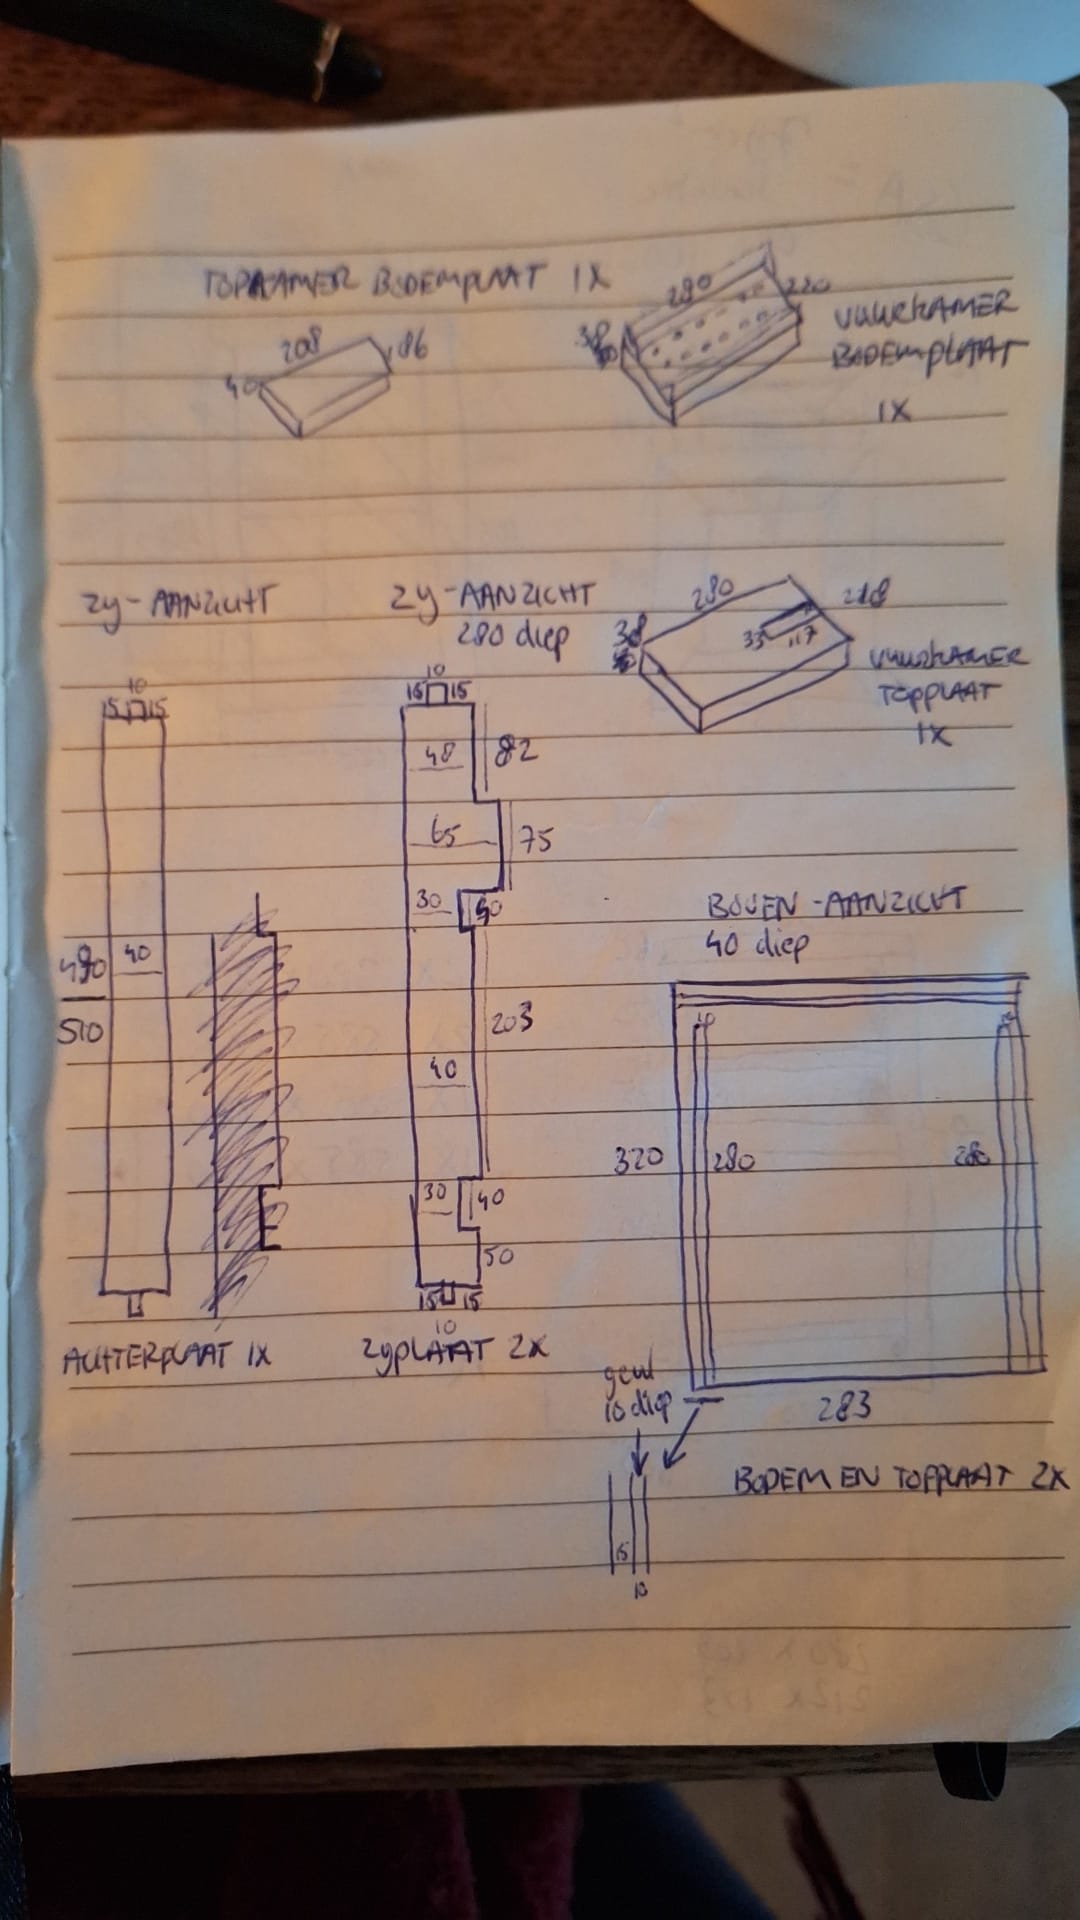 TOPKAMER BODEMPLAAT 1X
208
86
40
280
220
38
VUURKAMER
BODEMPLAAT
1X
ZY-AANZICHT
ZY-AANZICHT
280 diep
280
218
38
33
117
VUURKAMER
TOPPLAAT
1X
10
15 15
10
15 15
48
82
65
75
30
BOVEN-AANZICHT
40 diep
490
40
510
203
40
10
320
280
280
30
40
50
15 15
10
ACHTERPLAAT 1X
ZYPLAAT 2X
geul
10 diep
283
BODEM EN TOPPLAAT 2X
15
10